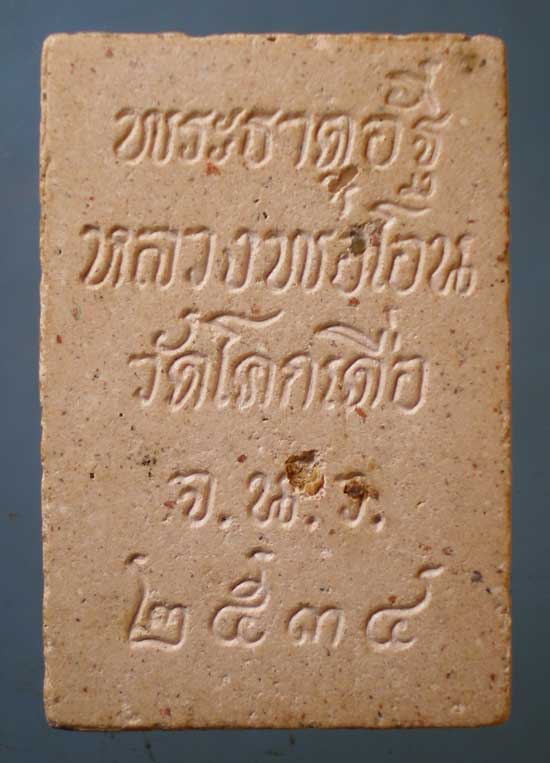 พระธาตุอัฐิ
หลวงพ่อโอน
วัดโคกเดื่อ
จ.น.ว.
๒๕๓๔